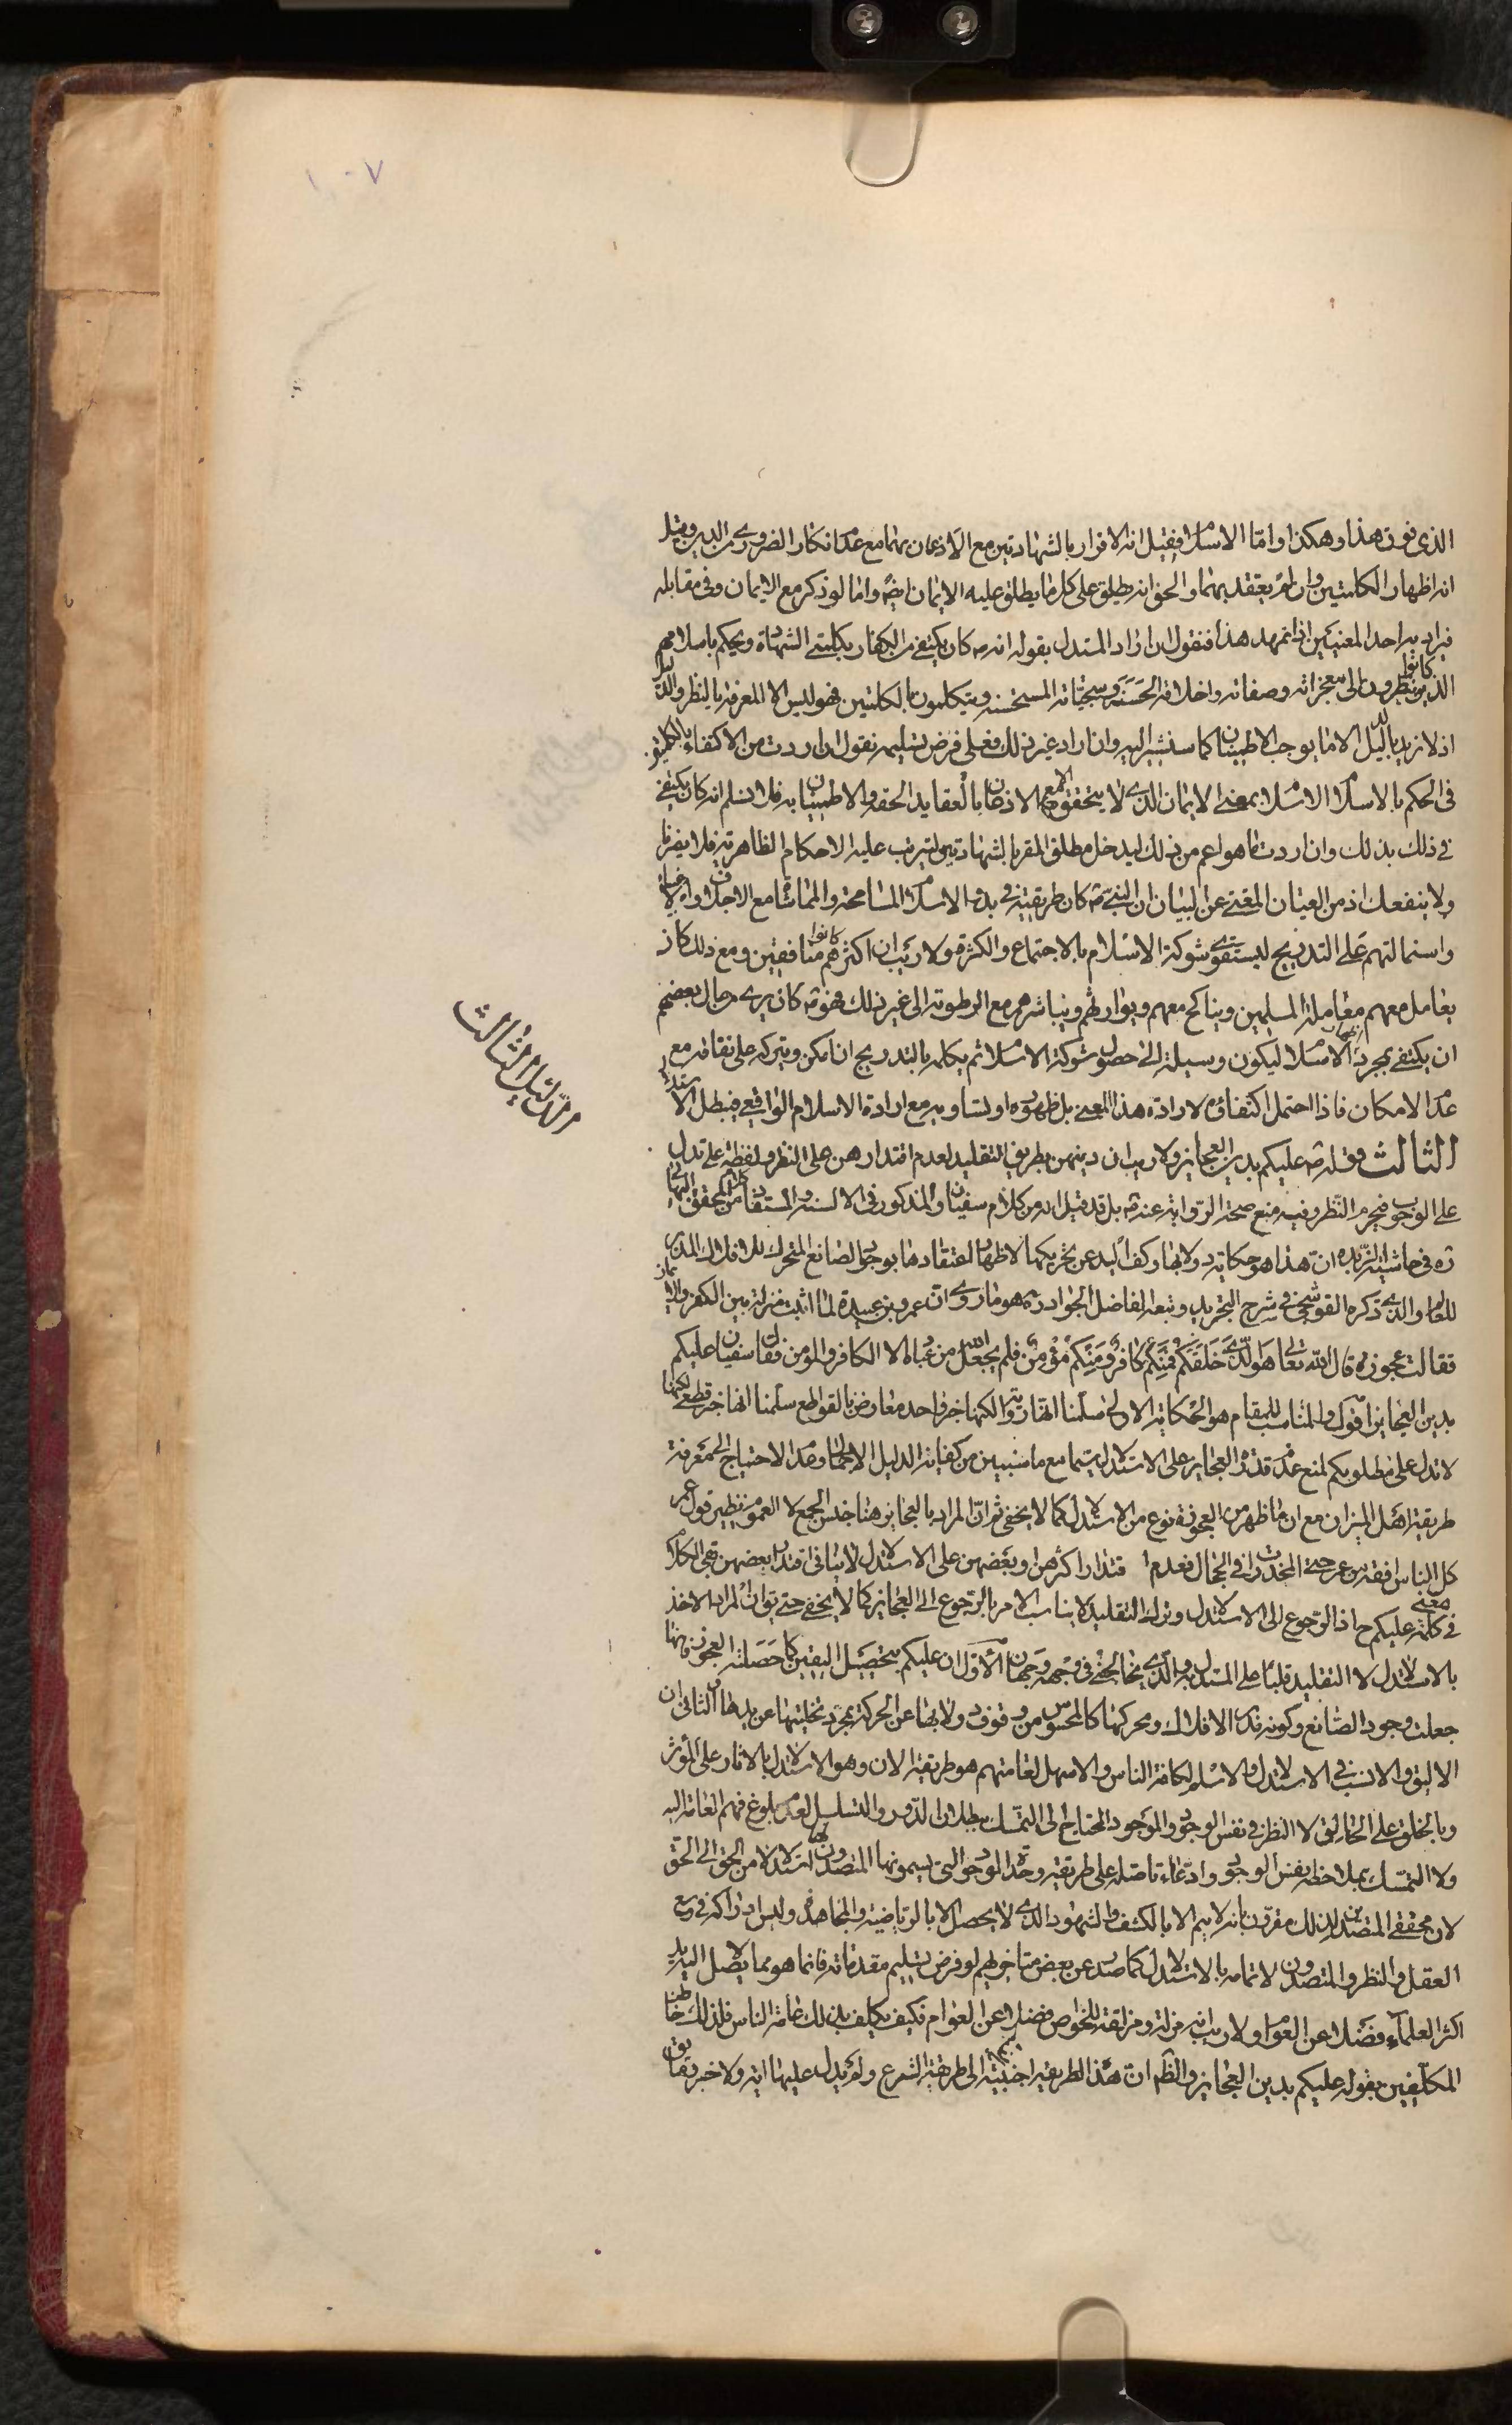 ١٠٠٧
الذى فوق هذا وهكذا واما الاسلام فقيل انه الاقرار بالشهادتين مع الاذعان بهما مع عدم انكار الضرورى من الدين وقيل
انه اظهار الكلمتين وان لم يعتقد بهما والحق انه يطلق على كل ما يطلق عليه الايمان ايضً واما لو ذكر مع الايمان وفى مقابله
فيراد به احد المعنيين اذا تمهد هذا فنقول ان اراد المستدل بقوله انه ص كان يكتفى من الكفار بكلمتى الشهادة ويحكم باسلامهم
الذين كانوا ينظرون الى معجزاته وصفاته واخلاقه الحسنة وسجياته المستحسنة ويتكلمون بالكلمتين فهو ليس الا المعرفة بالنظر والدليل
اذ لا نريد بالدليل الا ما يوجب الاطمينان كما سنشير اليه وان اراد غير ذلك فعلى فرض تسليمه نقول ان اردت من الاكتفاء بالكلمتين
فى الحكم بالاسلام الاسلام بمعنى الايمان الذى لا يتحقق الا مع الاذعان بالعقايد الحقه والاطمينان به فلا نسلم انه كان يكتفى
فى ذلك بذلك وان اردت ما هو اعم من ذلك ليدخل مطلق المقر بالشهادتين ليترتب عليه الاحكام الظاهرية فلا يضرنا
ولا ينفعك اذ من العيان المغنى عن البيان ان النبى ص كان طريقته فى بدو الاسلام المسامحة والمماشاة مع الاجلاف
واستمالتهم على التدريج ليستقوى شوكة الاسلام بالاجتماع والكثرة ولا ريب ان اكثرهم كانوا منافقين ومع ذلك كان
يعامل معهم معاملة المسلمين ويناكح معهم ويوارثهم ويباشرهم مع الرطوبة الى غير ذلك فهو ص كان يرى رجال بعضهم
ان يكتفى بمجرد اظهار الاسلام ليكون وسيلة الى حصول شوكة الاسلام ثم يكلمه بالتدريج ان امكن ويتركه على نفاقه مع
عدم الامكان فاذا احتمل اكتفاؤه لارادة هذا المعنى بل ظهوره او تساويه مع ارادة الاسلام الواقعى فيبطل الاستدلال
الثالث قوله ص عليكم بدين العجايز ولا ريب ان دينهن بطريق التقليد لعدم اقتدارهن على النظر ولفظة على تدل
على الوجوب فيحرم النظر وفيه منع صحة الرواية عنه ص بل قد قيل انه من كلام سفيان والمذكور فى الالسنة والمستفاد من كلام المحقق البهائى
ره فى حاشية الزبده ان هذا هو حكاية دولابها وكف اليد عن تحريكها لاظهار اعتقادها بوجود الصانع المتحرك للافلاك المدبر
للعالم والذى ذكره القوشجى فى شرح التجريد وتبعه الفاضل الجواد ره هو ما روى ان عمرو بن عبيده لما اثبت منزلة بين الكفر والايمان
فقالت عجوزة قال الله تعالى هو الذى خلقكم فمنكم كافر ومنكم مؤمن فلم يجعل الله من عباده الا الكافر والمؤمن فقال سفيان عليكم
بدين العجايز اقول والمناسب للمقام هو الحكاية الاولى سلمنا انها رواية لكنها خبر واحد معارض بالقواطع سلمنا انها خبر قطعى لكنها
لا تدل على مطلوبكم لمنع عدم قدرة العجايز على الاستدلال سيما مع ما سنبين من كفاية الدليل الاجمالى وعدم الاحتياج الى معرفة
طريقة اهل الميزان مع ان ما ظهر من العجوزة نوع من الاستدلال كما لا يخفى ثم ان المراد بالعجايز هنا جنس الجمع لا العموم نظير قول عمر
كل الناس افقه من عمر حتى المخدرات فى الحجال فعدم اقتدار اكثرهن او بعضهن على الاستدلال لا ينافى اقتدار بعضهن بقى الكلام
فى معنى كلمة عليكم ح اذ الرجوع الى الاستدلال وترك التقليد لا يناسب الامر بالرجوع الى العجايز كما لا يخفى حتى يق ان المراد الاخذ
بالاستدلال لا التقليد قلباً على المستدل والذى يتخالج فى وجهه وجهان الاول ان عليكم بتحصيل اليقين كما حصلته العجوز فانها
جعلت وجود الصانع وكونه مدبر الافلاك ومحركها كالمحسوس من وقوف دولابها عن الحركة بمجرد تخليتها عن يدها والثانى ان
الاليق والانسب فى الاستدلال والاسلم لكافة الناس والاسهل لعامتهم هو طريقة الان وهو الاستدلال بالاثار على المؤثر
وبالخلق على الخالق لا النظر فى نفس الوجود والموجود المحتاج الى التمسك ببطلان الدور والتسلسل لعدم بلوغ فهم العامة اليه
ولا التمسك بملاحظة نفس الوجود وادعاء تاصله على طريقة وحدة الوجود التى يسمونها المتصدون لها استدلالا من الحق الى الحق
لان محققى المتصدين لذلك مقرون بانه لا يتم الا بالكشف والشهود الذى لا يحصل الا بالرياضة والمجاهدة وليس ادراكه فى وسع
العقل والنظر والمتصدون لاتمامه بالاستدلال كما صدر عن بعض متاخريهم لو فرض تسليم مقدماته فانما هو مما لا يصل اليه يد
اكثر العلماء فضلا عن العوام ولا ريب انه مزلة ومزلقة للخواص فضلا عن العوام فكيف يكلف بذلك عامة الناس فلذلك خاطب
المكلفين بقوله عليكم بدين العجايز والظم ان هذا الطريقة اجنبية الى طريقة الشرع ولم يدل عليها اية ولا خبر
الدليل الثالث